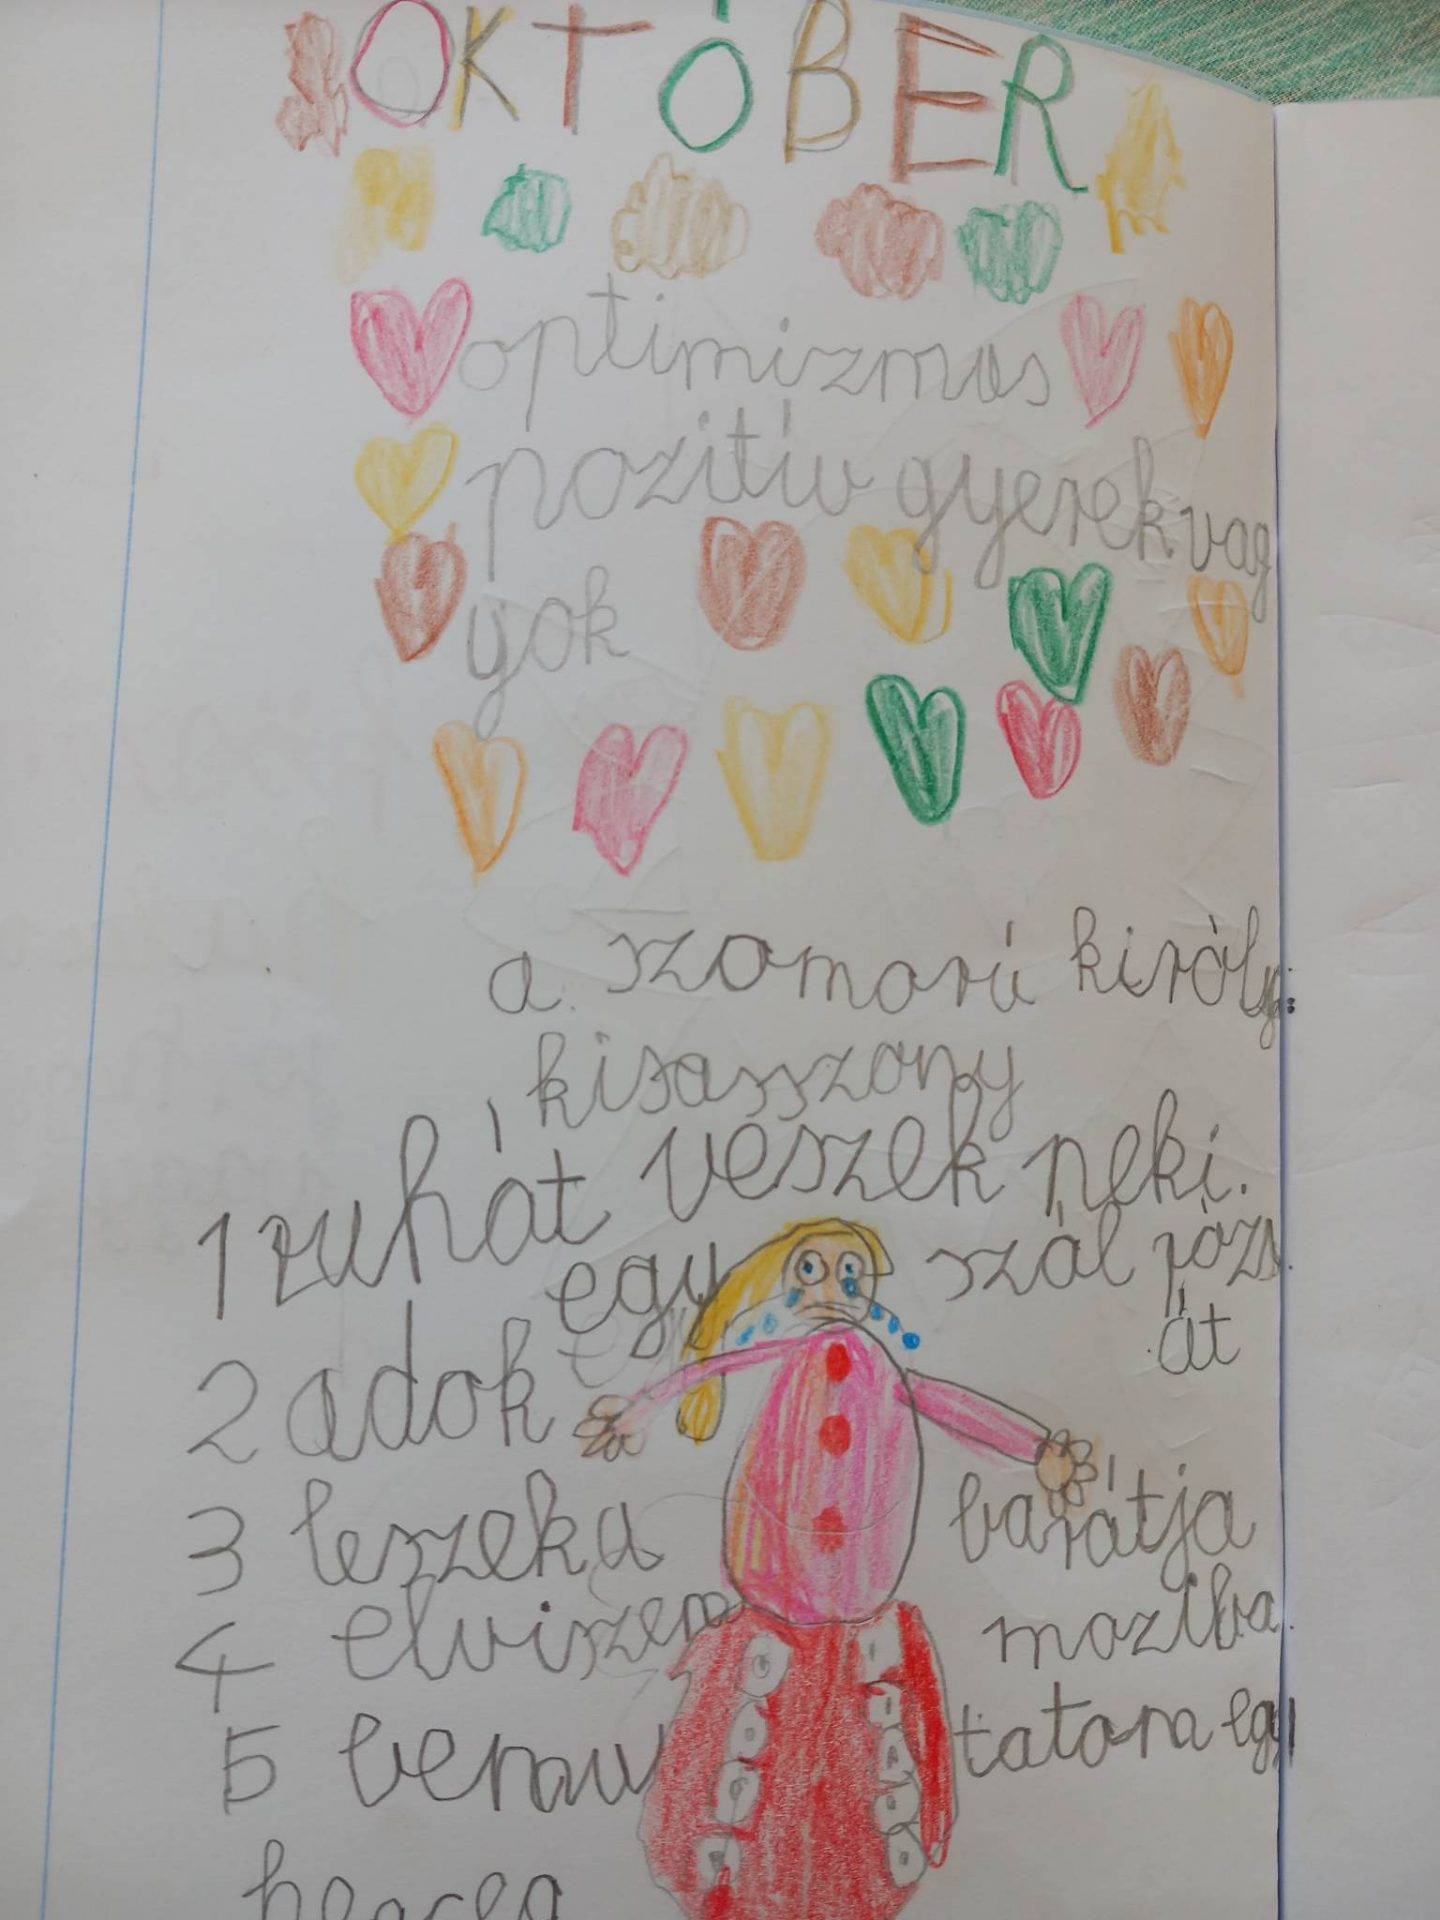 OKTÓBER
optimizmos
pozitív gyerek vag
yok
a szomorú király
kisasszony
1 ruhát veszek neki.
egy szál rózs
át
2 adok
3 leszek a barátja
4 elviszem moziba.
5 bemu tatom egy